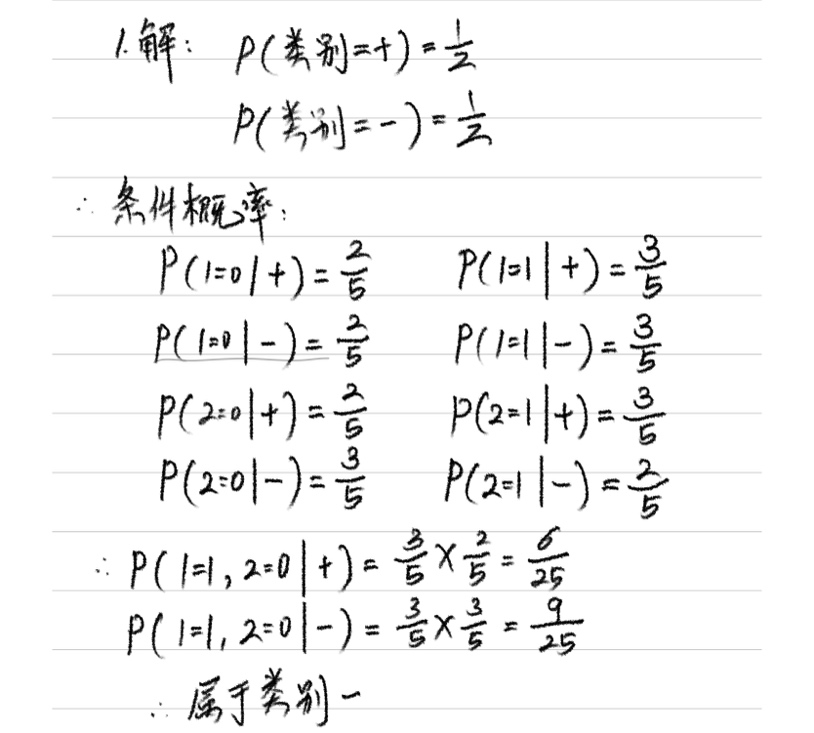 1.解: P(类别=+)=1/2
P(类别=-)=1/2
∴ 条件概率:
P(1=0|+)=2/5 P(1=1|+)=3/5
P(1=0|-)=2/5 P(1=1|-)=3/5
P(2=0|+)=2/5 P(2=1|+)=3/5
P(2=0|-)=3/5 P(2=1|-)=2/5
∴ P(1=1,2=0|+)=3/5×2/5=6/25
P(1=1,2=0|-)=3/5×3/5=9/25
∴ 属于类别-